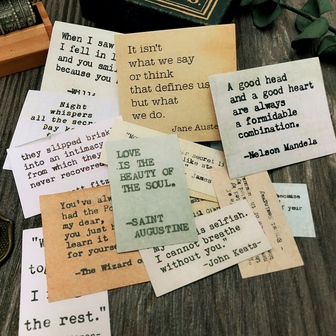 When I saw
I fell in l
and you smil
because you
It isn't
what we say
or think
that defines us
but what
we do.
Jane Auste
A good head
and a good heart
are always
a formidable
combination.
-Nelson Mandela
Night
whispers
all the secre
Day k
they slipped brisk
into an intimacy
from which they
never recovere
fitz
LOVE
IS THE
BEAUTY OF
THE SOUL.
-SAINT
AUGUSTINE
secret i
like st
James
You've al
had the Po
my dear,
you just h
learn it
for yourse
-The Wizard o
is selfish.
I cannot breathe
without you."
-John Keats-
because
f your
"W
to
I
the rest."